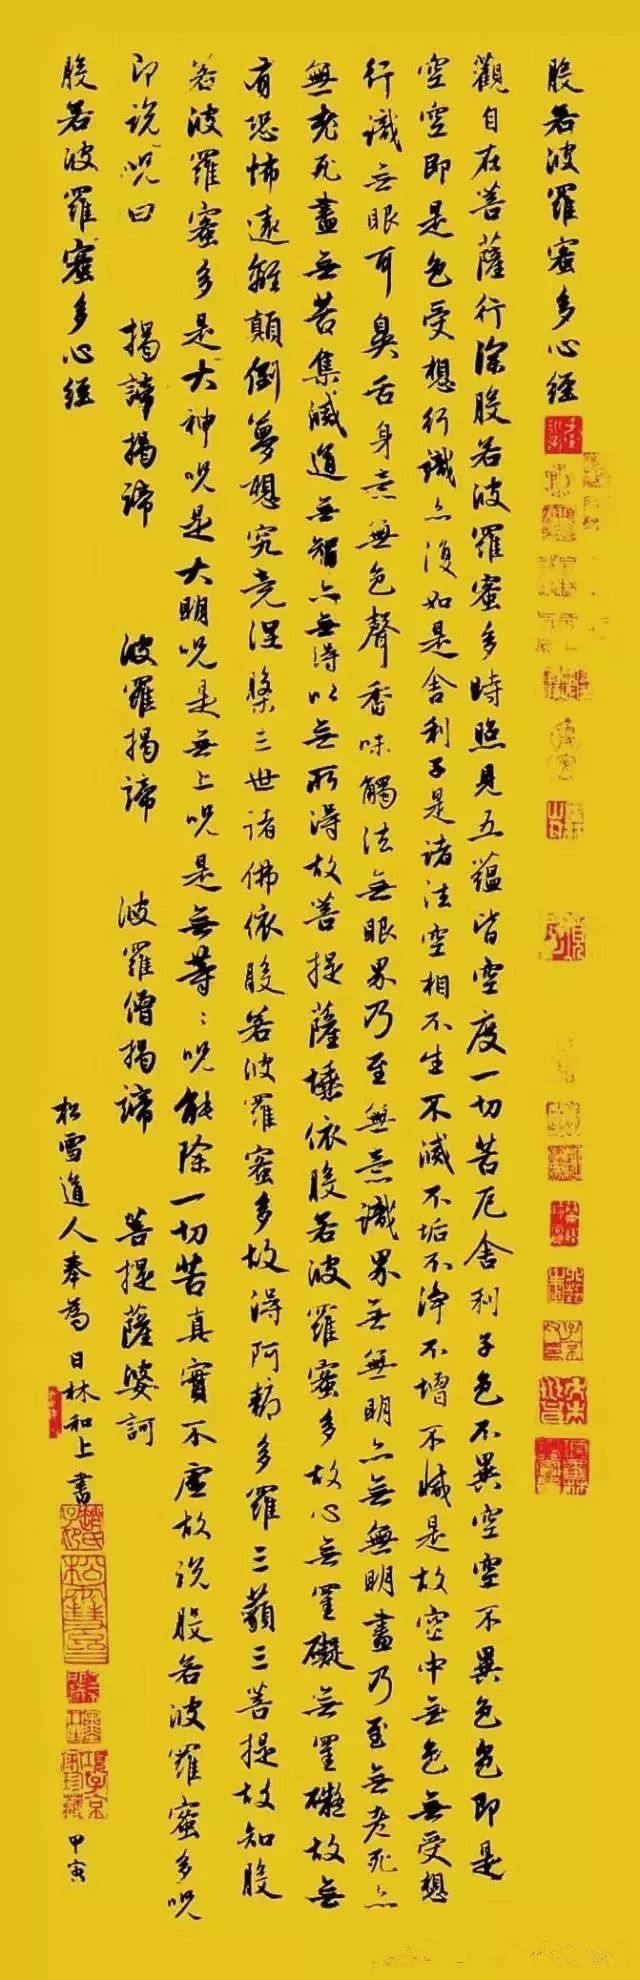 般若波羅蜜多心經
觀自在菩薩行深般若波羅蜜多時照見五蘊皆空度一切苦厄舍利子色不異空空不異色色即是
空空即是色受想行識亦復如是舍利子是諸法空相不生不滅不垢不淨不增不減是故空中無色無受想
行識无眼耳鼻舌身意無色聲香味觸法無眼界乃至無意識界無無明亦無無明盡乃至無老死亦
無老死盡無苦集滅道無智亦無得以無所得故菩提薩埵依般若波羅蜜多故心無罣礙無罣礙故無
有恐怖遠離顛倒夢想究竟涅槃三世諸佛依般若波羅蜜多故得阿耨多羅三藐三菩提故知般
若波羅蜜多是大神咒是大明咒是無上咒是無等〻咒能除一切苦真實不虛故說般若波羅蜜多咒
即說咒曰 揭諦揭諦 波羅揭諦 波羅僧揭諦 菩提薩婆訶
般若波羅蜜多心經
松雪道人奉為日林和上書
趙氏子昂
項子京家珍藏
甲寅